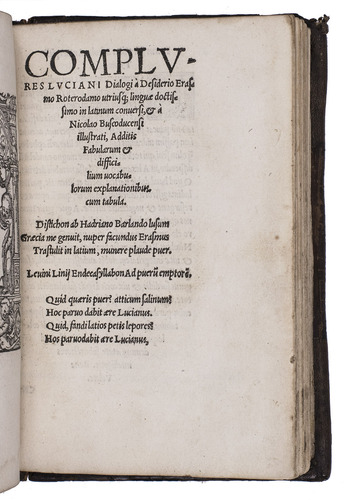 COMPLV-
RES LVCIANI Dialogi à Desiderio Eras
mo Roterodamo utriusq; linguæ doctis
simo in latinum conuersi, & à
Nicolao Buscoducensi
illustrati, Additis
Fabularum &
diffici
lium uocabu
lorum explanationibus.
cum tabula.
Distichon ab Hadriano Barlando lusum
Græcia me genuit, nuper facundus Erasmus
Trastulit in latium, munere plaude puer.
Leuini Linij Endecasyllabon Ad puerū emptorē.
Quid quæris puer? atticum salinum?
Hoc paruo dabit ære Lucianus.
Quid, fandi latios petis lepores?
Hos paruo dabit ære Lucianus,